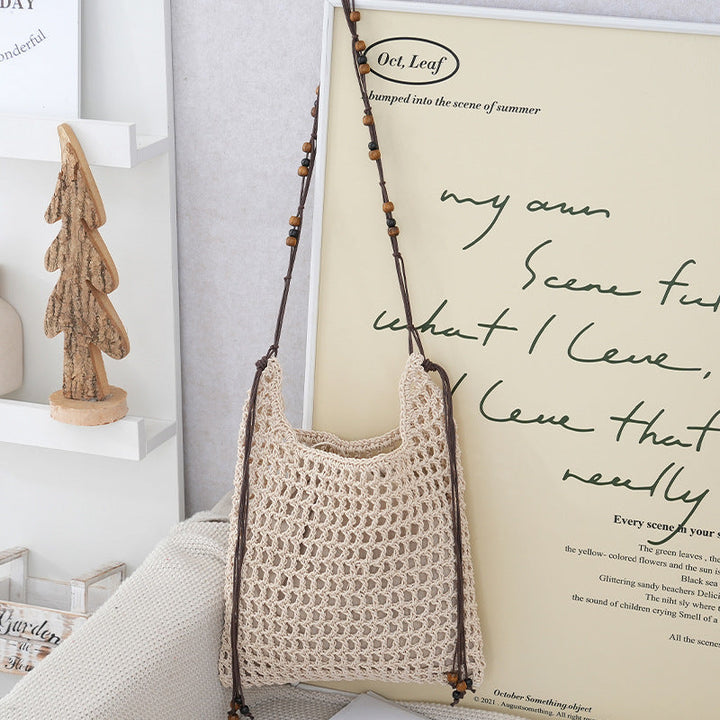 DAY
onderful
Oct, Leaf
bumped into the scene of summer
my own
Scene ful
what I love,
I love that
really
Every scene in your s
The green leaves , the
the yellow- colored flowers and the sun is
Black sea
Glittering sandy beachers Delici
The niht sly where t
the sound of children crying Smell of a
All the scenes
October Something.object
© 2021 . Augustsomething. All right
Garden
de
Flore